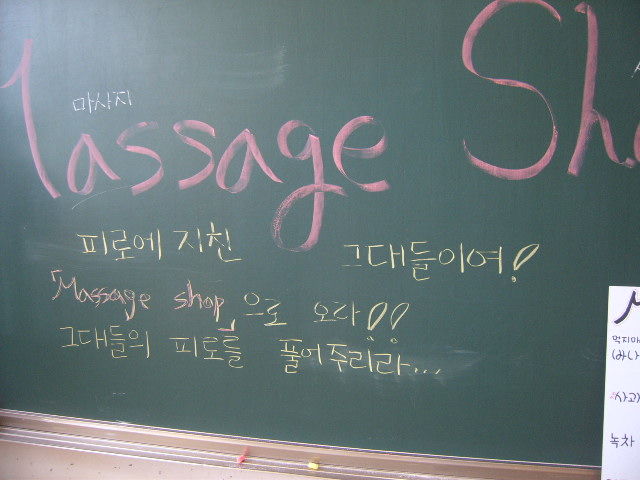 Massage Sho
마사지
피로에 지친 그대들이여!
「Massage shop」으로 오라!!
그대들의 피로를 풀어주리라...
사과
녹차